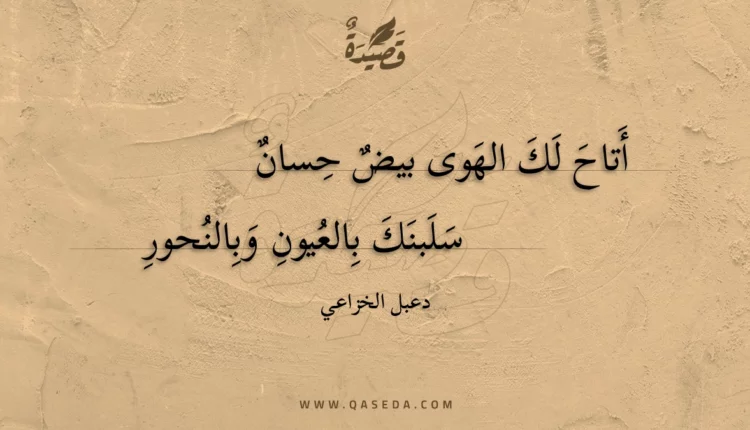 قَصِيْدَةٌ
أَتاحَ لَكَ الهَوى بيضٌ حِسانٌ
سَلَبنَكَ بِالعُيونِ وَبِالنُحورِ
دعبل الخزاعي
WWW.QASEDA.COM